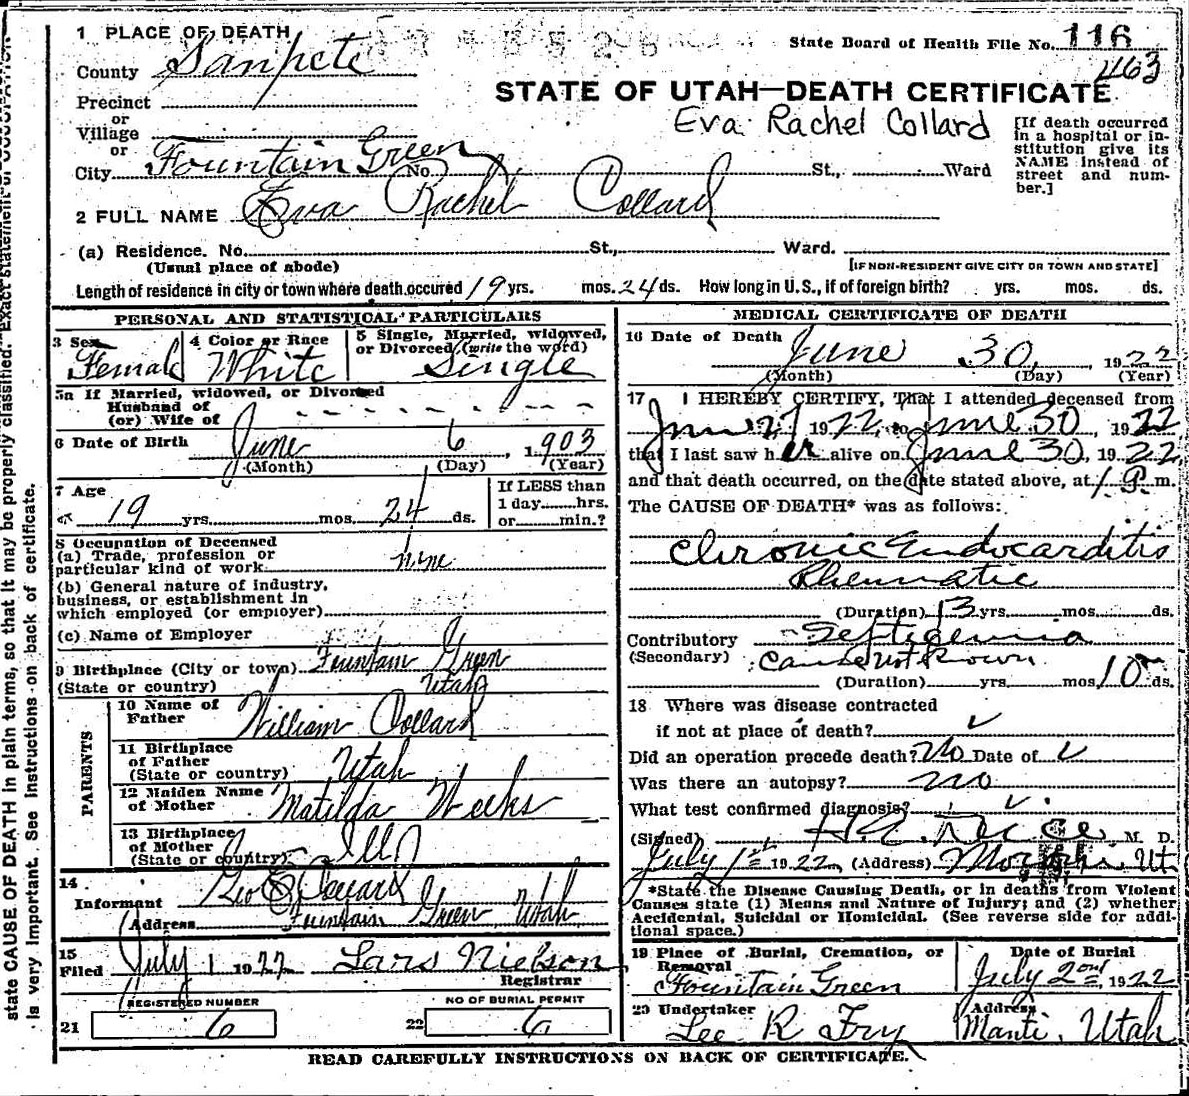 1 PLACE OF DEATH
State Board of Health File No. 116
County Sanpete
463
STATE OF UTAH—DEATH CERTIFICATE
Precinct
or
Village
Eva Rachel Collard
[If death occurred in a hospital or institution give its NAME instead of street and number.]
or
City Fountain Green No. St., Ward
2 FULL NAME Eva Rachel Collard
(a) Residence. No. St., Ward.
(Usual place of abode) [IF NON-RESIDENT GIVE CITY OR TOWN AND STATE]
Length of residence in city or town where death occured 19 yrs. mos. 24 ds. How long in U.S., if of foreign birth? yrs. mos. ds.
PERSONAL AND STATISTICAL PARTICULARS
3 Sex 4 Color or Race 5 Single, Married, widowed,
or Divorced (write the word)
Female White Single
5a If Married, widowed, or Divorced
Husband of
(or) Wife of
6 Date of Birth June 6, 1903
(Month) (Day) (Year)
7 Age If LESS than
1 day hrs.
19 yrs. mos. 24 ds. or min.?
8 Occupation of Deceased
(a) Trade, profession or
particular kind of work
(b) General nature of industry,
business, or establishment in
which employed (or employer)
(c) Name of Employer
9 Birthplace (City or town) Fountain Green
(State or country) Utah
PARENTS
10 Name of
Father William Collard
11 Birthplace
of Father
(State or country) Utah
12 Maiden Name
of Mother Matilda Weeks
13 Birthplace
of Mother
(State or country) Ill
14
Informant Geo Collard
Address Fountain Green Utah
15
Filed July 1 1922 Lars Nielson
Registrar
REGISTERED NUMBER NO OF BURIAL PERMIT
21 6 22 6
MEDICAL CERTIFICATE OF DEATH
16 Date of Death June 30, 1922
(Month) (Day) (Year)
17 I HEREBY CERTIFY, That I attended deceased from
June 27 1922, to June 30, 1922
that I last saw her alive on June 30, 1922,
and that death occurred, on the date stated above, at 1 P. m.
The CAUSE OF DEATH* was as follows:
Chronic Endocarditis
Rheumatic
(Duration) 13 yrs. mos. ds.
Contributory Septicemia
(Secondary) cause not known
(Duration) yrs. mos. 10 ds.
18 Where was disease contracted
if not at place of death? ✓
Did an operation precede death? No Date of ✓
Was there an autopsy? no
What test confirmed diagnosis? ✓
(Signed) M. D.
July 1st 1922 (Address) Moroni, Ut.
*State the Disease Causing Death, or in deaths from Violent
Causes state (1) Means and Nature of Injury; and (2) whether
Accidental, Suicidal or Homicidal. (See reverse side for addi-
tional space.)
19 Place of Burial, Cremation, or Date of Burial
Removal
Fountain Green July 2nd, 1922
20 Undertaker Address
Lee R Fry Manti, Utah
READ CAREFULLY INSTRUCTIONS ON BACK OF CERTIFICATE.
state CAUSE OF DEATH in plain terms, so that it may be properly classified. Exact statement of OCCUPATION
is very important. See instructions on back of certificate.